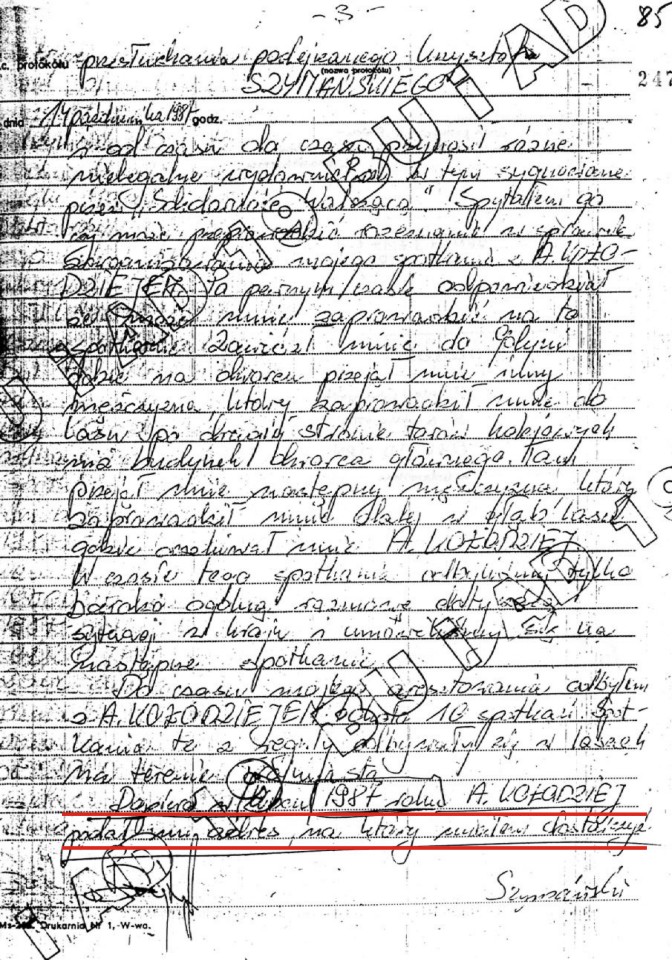 - 3 -
85
247
c. protokółu przesłuchania podejrzanego Krzysztofa
(nazwa protokółu)
SZYMAŃSKIEGO
dnia 14 października 1987 godz.
i od czasu do czasu przynosił różne
nielegalne wydawnictwa w tym sygnowane
przez "Solidarność Walczącą". Spytałem go
czy może przeprowadzić rozeznanie w sprawie
zorganizowania mojego spotkania z A. KOŁO-
DZIEJEM. Po pewnym czasie odpowiedział
że może mnie zaprowadzić na to
spotkanie. Zawiózł mnie do Gdyni
gdzie na dworcu przejął mnie inny
mężczyzna, który zaprowadził mnie do
lasu po drugiej stronie torów kolejowych
niż budynek dworca głównego. Tam
przejął mnie następny mężczyzna który
zaprowadził mnie dalej w głąb lasu
gdzie oczekiwał mnie A. KOŁODZIEJ.
W czasie tego spotkania odbyliśmy tylko
bardzo ogólną rozmowę dotyczącą
sytuacji w kraju i umówiliśmy się na
następne spotkanie.
Do czasu mojego aresztowania odbyłem
z A. KOŁODZIEJEM około 10 spotkań. Spot-
kania te z reguły odbywały się w lasach
na terenie Trójmiasta.
Dopiero w 1987 roku A. KOŁODZIEJ
podał mi adres, na który miałem dostarczyć
Szymański
Drukarnia Nr 1, W-wa.
BU i AD